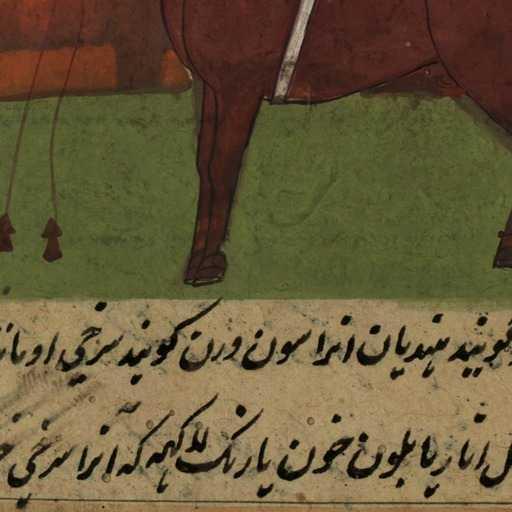 گویند هندیان انرا سون ورن گویند سرخی او مانند
گل انار یا بلون خون یا رنک لاکهه که آنرا سرخی